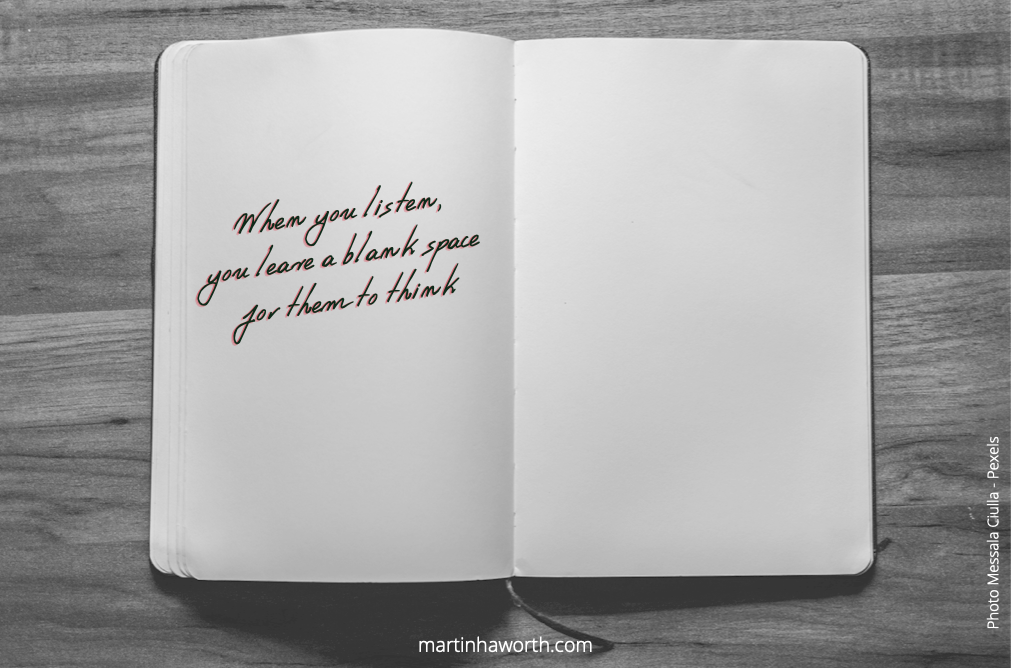 When you listen,
you leave a blank space
for them to think
martinhaworth.com
Photo Messala Ciulla - Pexels